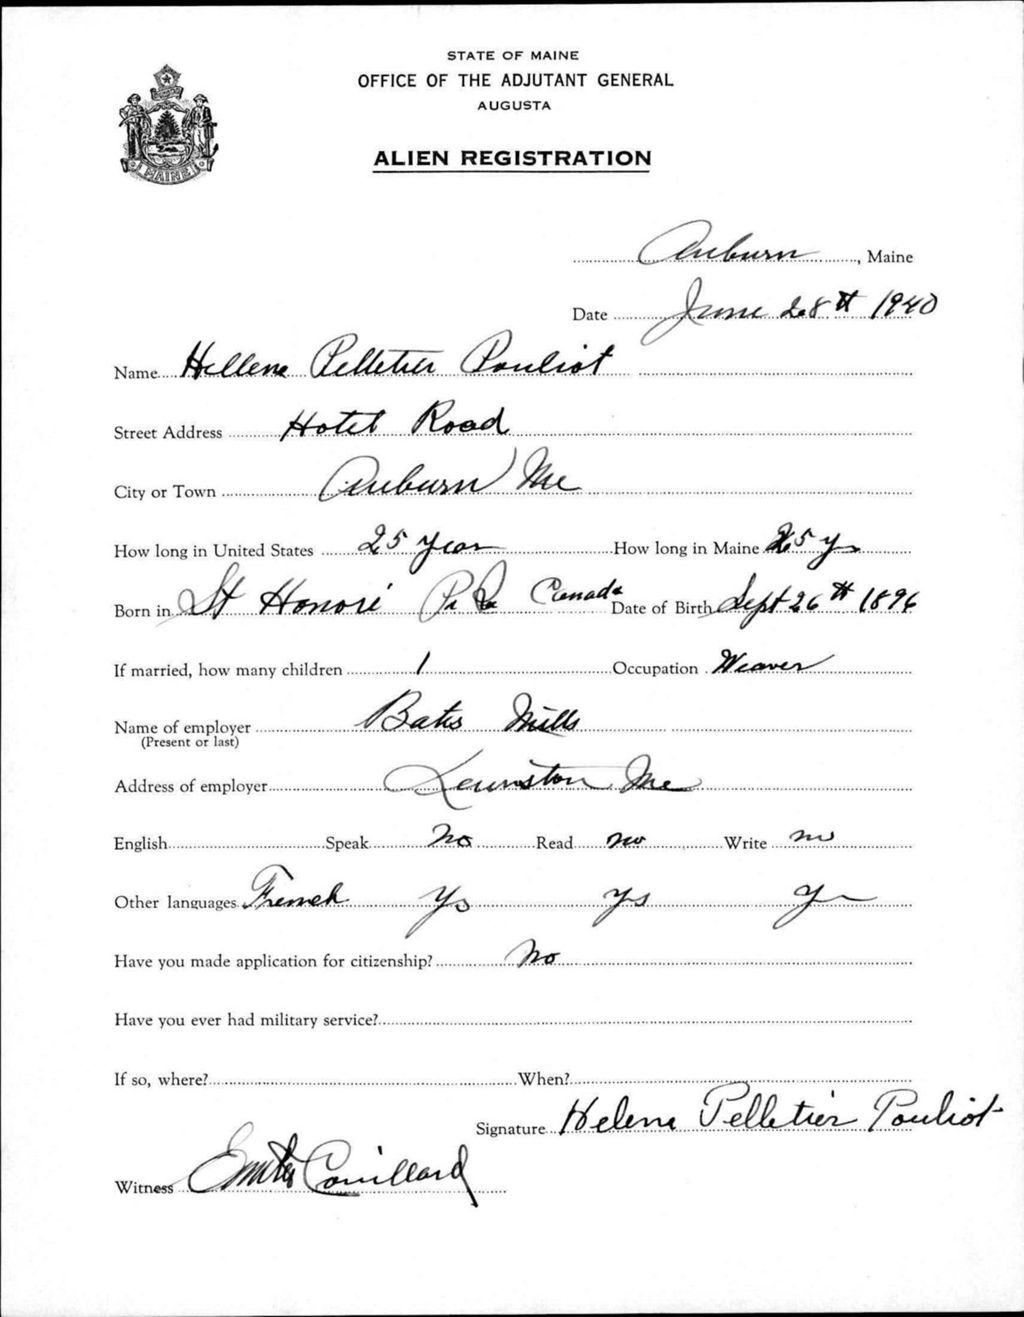 STATE OF MAINE
OFFICE OF THE ADJUTANT GENERAL
AUGUSTA
ALIEN REGISTRATION
MAINE
Auburn, Maine
Date June 28th 1940
Name Hellene Pelletier Pouliot
Street Address Hotel Road
City or Town Auburn Me
How long in United States 25 year How long in Maine 25 yr
Born in St Honoré P. Q. Canada Date of Birth Sept 26th 1896
If married, how many children 1 Occupation Weaver
Name of employer Bates Mills
(Present or last)
Address of employer Lewiston Me
English Speak No Read no Write no
Other languages French Ys ys
Have you made application for citizenship? No
Have you ever had military service?
If so, where? When?
Signature Helene Pelletier Pouliot
Witness Couillard